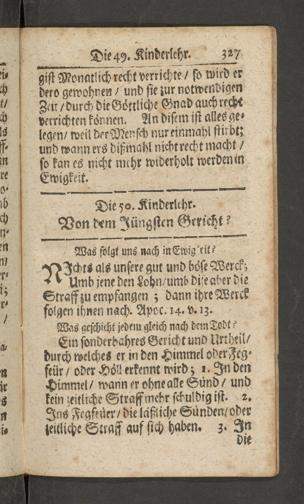 Die 49. Kinderlehr. 327
gist Monatlich recht verrichte / so wird er
dero gewohnen / und sie zur notwendigen
Zeit / durch die Göttliche Gnad auch recht
verrichten können. An disem ist alles ge-
legen / weil der Mensch nur einmahl stirbt;
und wann ers dißmahl nicht recht macht /
so kan es nicht mehr widerholt werden in
Ewigkeit.
Die 50. Kinderlehr.
Von dem Jüngsten Gericht?
Was folgt uns nach in Ewigkeit?
NIchts als unsere gut und böse Werck;
Umb jene den Lohn / umb dise aber die
Straff zu empfangen; dann ihre Werck
folgen ihnen nach. Apoc. 14. v. 13.
Was geschicht jedem gleich nach dem Todt?
Ein sonderbahres Gericht und Urtheil /
durch welches er in den Himmel oder Feg-
feür / oder Höll erkennt wird; 1. In den
Himmel / wann er ohne alle Sünd / und
kein zeitliche Straff mehr schuldig ist. 2.
Ins Fegfeüer / die läßliche Sünden / oder
zeitliche Straff auf sich haben. 3. In
die